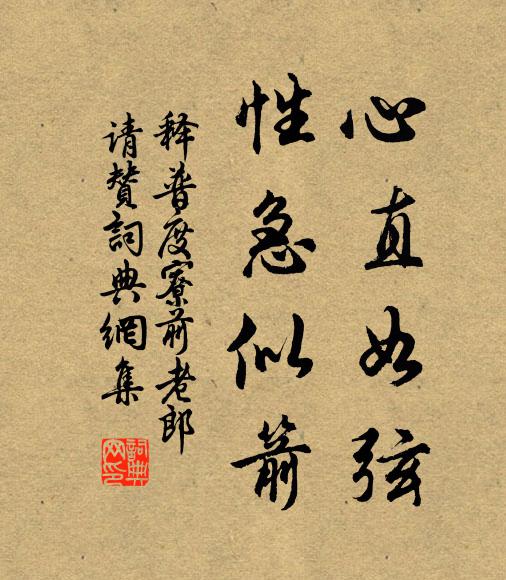 心直如弦
性急似箭
释普度寮前老郎
请赞詞典網集
詞典網印